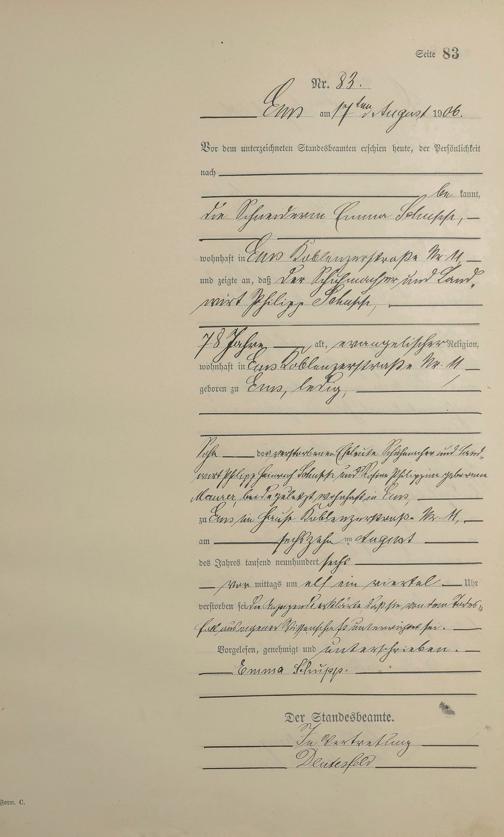 Seite 83
Nr. 83.
Ems am 17ten August 1906.
Vor dem unterzeichneten Standesbeamten erschien heute, der Persönlichkeit
nach
be kannt,
die Schneiderin Emma Schupp,
wohnhaft in Ems Koblenzerstraße Nr. 11
und zeigte an, daß der Schuhmacher und Land-
wirt Philipp Schupp,
78 Jahre alt, evangelischer Religion,
wohnhaft in Ems Koblenzerstraße Nr. 11
geboren zu Ems, ledig,
Sohn der verstorbenen Eheleute Schuhmacher und Land-
wirt Philipp Heinrich Schupp und Philippine geborene
Maurer, beide zuletzt wohnhaft in Ems,
zu Ems im Hause Koblenzerstraße Nr. 11,
am sechszehn ten August
des Jahres tausend neunhundert sechs
vor mittags um elf ein viertel Uhr
verstorben sei. Die Anzeigende erklärte daß sie von dem Todes-
fall aus eigener Wissenschaft unterrichtet sei.
Vorgelesen, genehmigt und unterschrieben.
Emma Schupp.
Der Standesbeamte.
In Vertretung
Form. C.